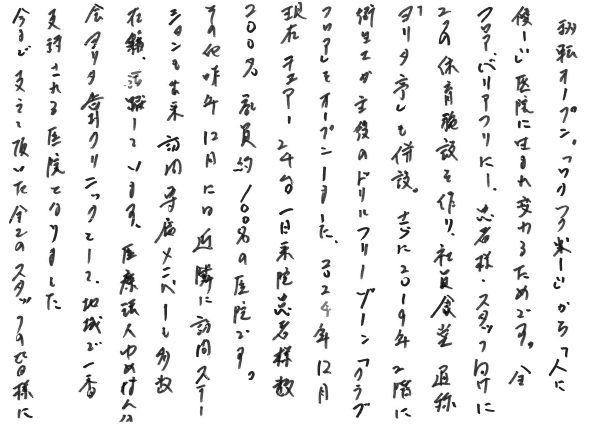 移転オープン。「ワクワク楽しい」から「人に
優しい」医院に生まれ変わるためです。全
フロア、バリアフリーに、患者様・スタッフ向けに
2つの保育施設を作り、社員食堂 通称
「ヨリタ亭」も併設。さらに2019年2階に
衛生士が主役のドリルフリーゾーン「クラブ
フロア」をオープンしました。2024年12月
現在 チェアー24台 一日来院患者様数
200名 社員約100名の医院です。
その他昨年12月には近隣に訪問ステー
ションも出来 訪問専属メンバーも多数
在籍、活躍しています。医療法人ゆめはんな
会ヨリタ歯科クリニックとして、地域で一番
支持される医院となりました
今まで支えて頂いた全てのスタッフの皆様に